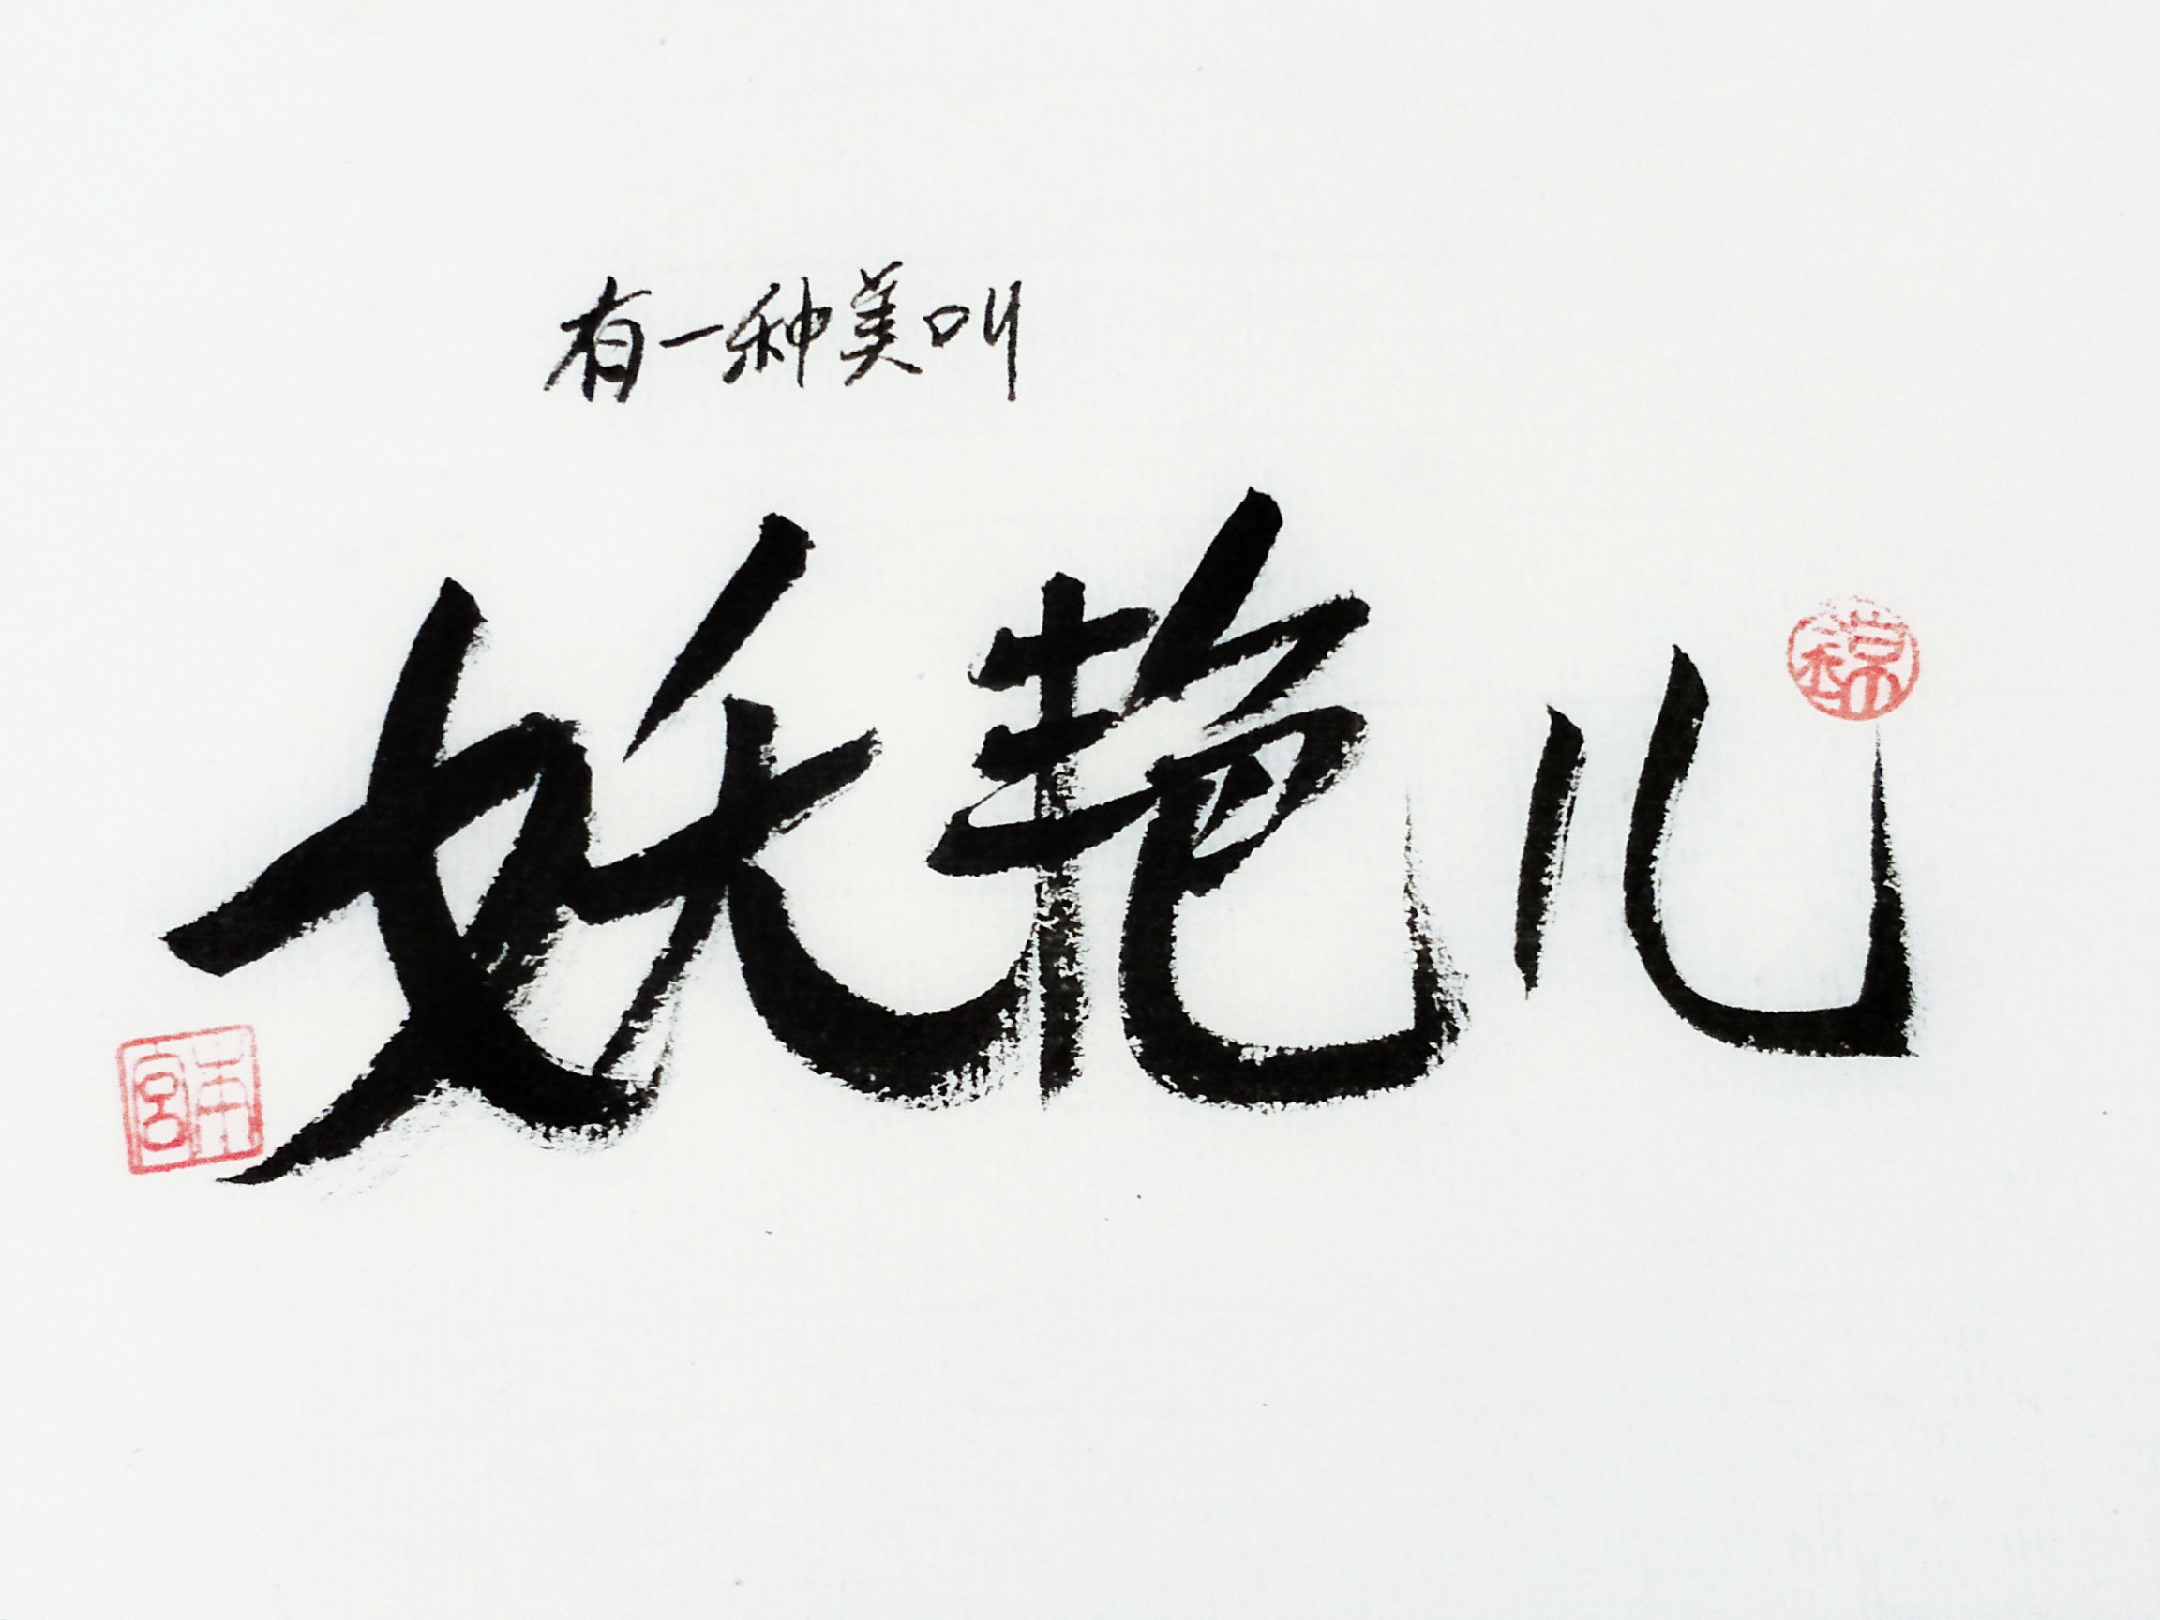 有一种美叫
妖艳儿